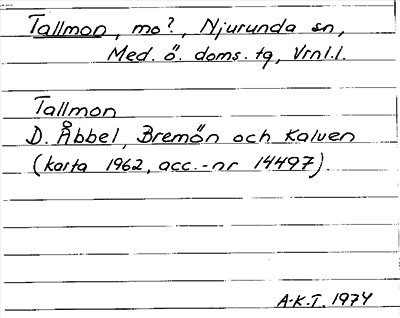 Tallmon, mo?, Njurunda sn,
Med. ö. doms. tg, Vrnl.l.
Tallmon
D. Åbbel, Bremön och Kalven
(karta 1962, acc.-nr 14497).
A-K.T. 1974